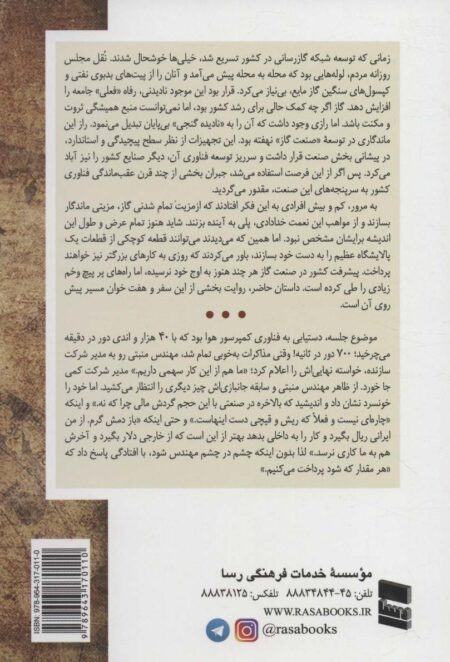 زمانی که توسعه شبکه گازرسانی در کشور تسریع شد، خیلی‌ها خوشحال شدند. نُقل مجلس
روزانه مردم، لوله‌هایی بود که محله به محله پیش می‌آمد و آنان را از پیت‌های بدبوی نفتی و
کپسول‌های سنگین گاز مایع، بی‌نیاز می‌کرد. قرار بود این موجود نادیدنی، رفاه «فعلی» جامعه را
افزایش دهد. گاز اگر چه کمک حالی برای رشد کشور بود، اما نمی‌توانست منبع همیشگی ثروت
و مکنت باشد. اما رازی وجود داشت که آن را به «نادیده گنجی» بی‌پایان تبدیل می‌نمود. راز این
ماندگاری در توسعهٔ «صنعت گاز» نهفته بود. این تجهیزات از نظر سطح پیچیدگی و استاندارد،
در پیشانی بخش صنعت قرار داشت و سرریز توسعه فناوری آن، دیگر صنایع کشور را نیز آباد
می‌کرد. پس اگر از این فرصت استفاده می‌شد، جبران بخشی از چند قرن عقب‌ماندگی فناوری
کشور به سرپنجه‌های این صنعت، مقدور می‌گردید.
به مرور، کم و بیش افرادی به این فکر افتادند که ازمزیت تمام شدنی گاز، مزیتی ماندگار
بسازند و از مواهب این نعمت خدادادی، پلی به آینده بزنند. شاید هنوز تمام عرض و طول این
اندیشه برایشان مشخص نبود. اما همین که می‌دیدند می‌توانند قطعه کوچکی از قطعات یک
پالایشگاه عظیم را به دست خود بسازند، باور می‌کردند که روزی به کارهای بزرگتر نیز خواهند
پرداخت. پیشرفت کشور در صنعت گاز هر چند هنوز به اوج خود نرسیده، اما راه‌های پر پیچ وخم
زیادی را طی کرده است. داستان حاضر، روایت بخشی از این سفر و هفت خوان مسیر پیش
روی آن است.
موضوع جلسه، دستیابی به فناوری کمپرسور هوا بود که با ۴۰ هزار و اندی دور در دقیقه
می‌چرخید؛ ۷۰۰ دور در ثانیه! وقتی مذاکرات به‌خوبی تمام شد، مهندس منبتی رو به مدیر شرکت
سازنده، خواسته نهایی‌اش را اعلام کرد؛ «ما هم از این کار سهمی داریم.» مدیر شرکت کمی
جا خورد. از ظاهر مهندس منبتی و سابقه جانبازی‌اش چیز دیگری را انتظار می‌کشید. اما خود را
خونسرد نشان داد و اندیشید که بالاخره در صنعتی با این حجم گردش مالی چرا که نه.» و اینکه
«چاره‌ای نیست و فعلاً که ریش و قیچی دست اینهاست.» و حتی اینکه «باز دمش گرم. از من
ایرانی ریال بگیرد و کار را به داخلی بدهد بهتر از این است که از خارجی دلار بگیرد و آخرش
هم به ما کاری نرسد.» لذا بدون اینکه چشم در چشم مهندس شود، با افتادگی پاسخ داد که
«هر مقدار که شود پرداخت می‌کنیم.»
مؤسسهٔ خدمات فرهنگی رسا
تلفن: ۴۵-۸۸۸۳۴۸۴۴ تلفکس: ۸۸۸۳۸۱۲۵
WWW.RASABOOKS.IR
@rasabooks
رسا
ISBN: 978-964-317-011-0
9 789643 170110